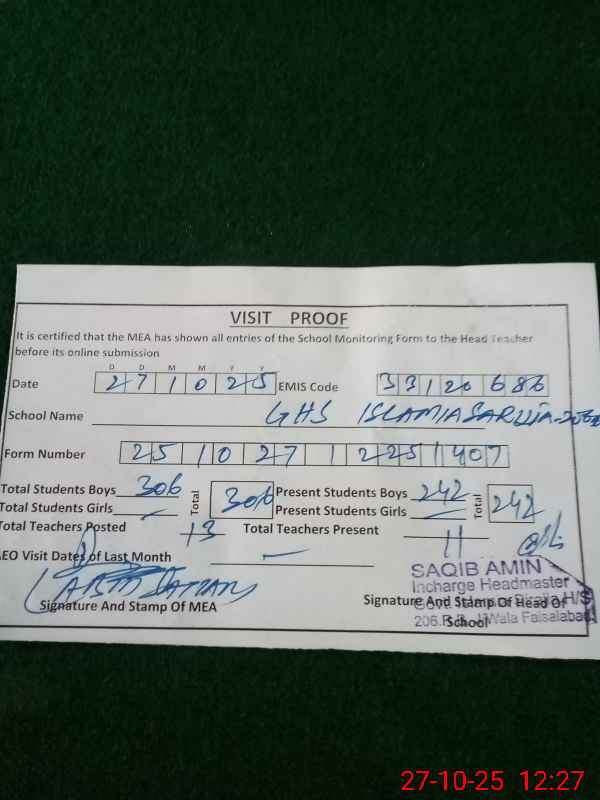 VISIT PROOF
It is certified that the MEA has shown all entries of the School Monitoring Form to the Head Teacher
before its online submission
D D M M Y Y
Date 27 10 25 EMIS Code 33120686
School Name GHS ISLAMIA
Form Number
Total Students Boys 306 Total 306 Present Students Boys 242 Total 242
Total Students Girls — Present Students Girls —
Total Teachers Posted 13 Total Teachers Present 11
AEO Visit Dates of Last Month —
SAQIB AMIN
Incharge Headmaster
Signature And Stamp Of MEA Signature And Stamp Of Head Of
School
206 Wala Faisalabad
27-10-25 12:27